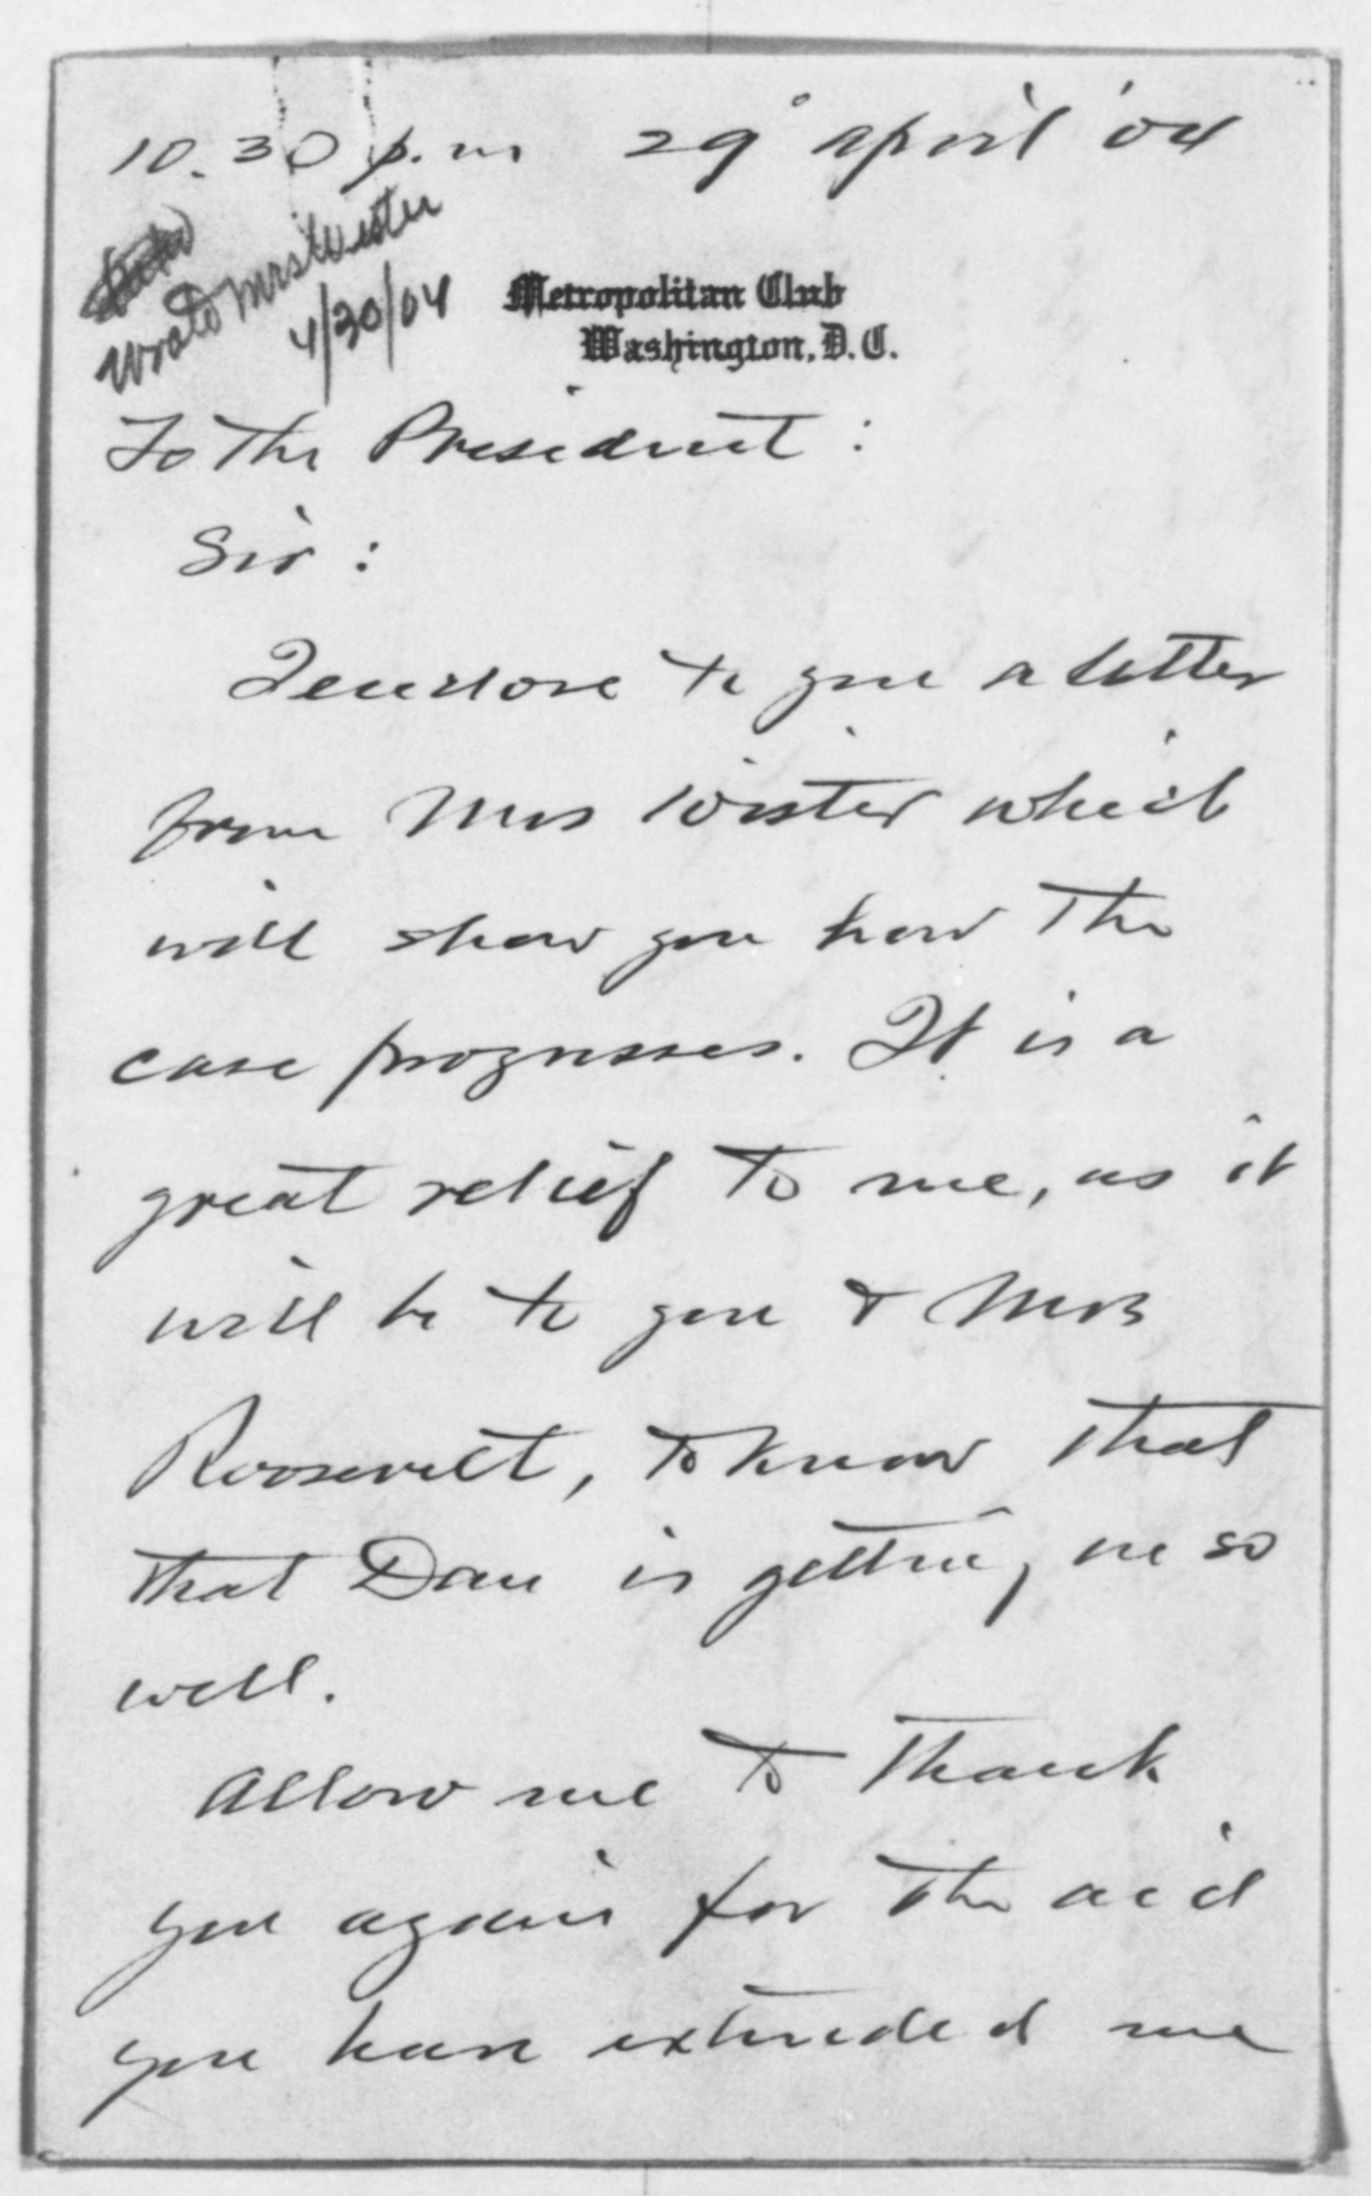 10.30 p.m 29 april '04
Wrote Mrs Wister
4/30/04
Metropolitan Club
Washington, D.C.
To the President:
Sir:
I enclose to you a letter
from Mrs Wister which
will show you how the
case progresses. It is a
great relief to me, as it
will be to you & Mrs
Roosevelt, to know that
that Dan is getting on so
well.
Allow me to thank
you again for the aid
you have extended me